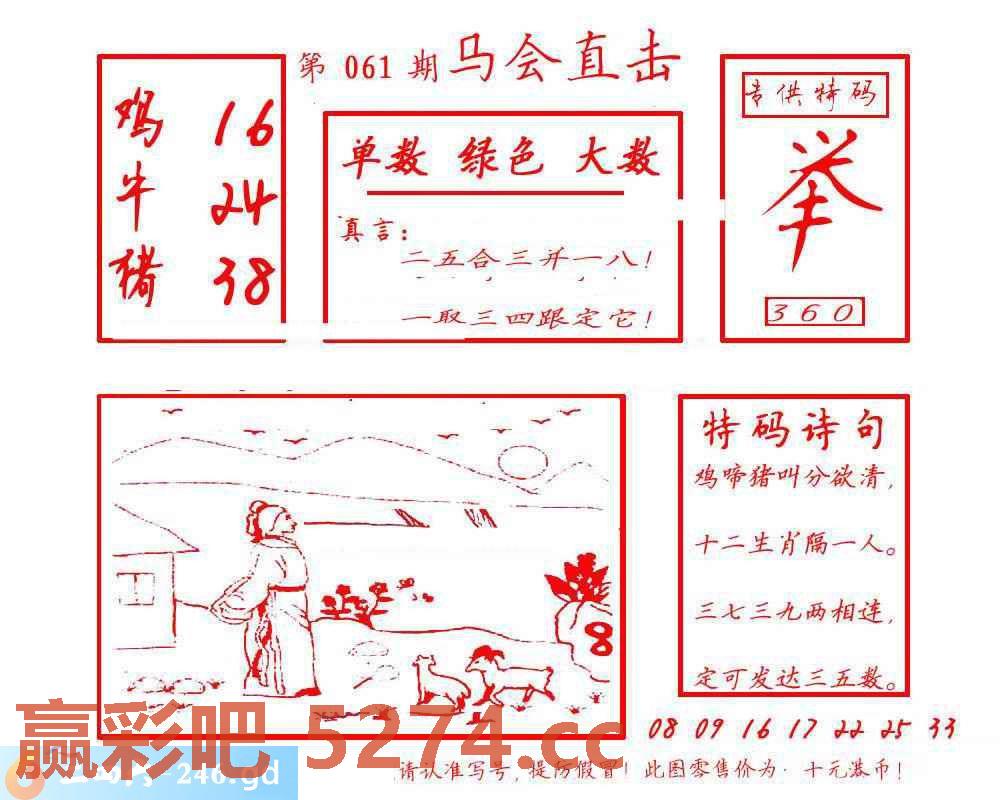 第 061 期 马会直击
鸡 16
牛 24
猪 38
单数 绿色 大数
真言:
二五合三并一八!
一取三四跟定它!
专供特码
举
360
8
特码诗句
鸡啼猪叫分欲清,
十二生肖隔一人。
三七三九两相连,
定可发达三五数。
08 09 16 17 22 25 33
赢彩吧 5274.cc
-246.gd
请认准写号,提防假冒!此图零售价为·十元港币!